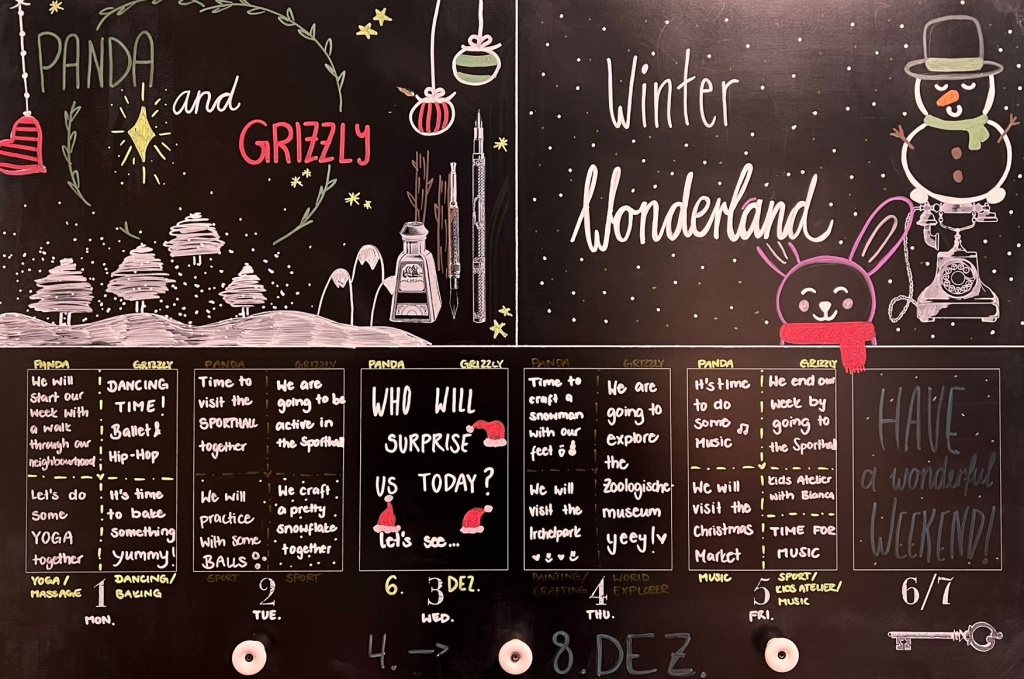 PANDA
and
GRIZZLY
Winter
Wonderland
PANDA GRIZZLY
We will
start our
week with
a walk
through our
neighbourhood
DANCING
TIME!
Ballet &
Hip-Hop
Let's do
some
YOGA
together
It's time
to bake
something
yummy!
YOGA/
MASSAGE
DANCING/
BAKING
1
MON.
PANDA GRIZZLY
Time to
visit the
SPORTHALL
together
We are
going to be
active in
the Sporthall
We will
practice
with some
BALLS
We craft
a pretty
snowflake
together
SPORT SPORT
2
TUE.
PANDA GRIZZLY
WHO WILL
SURPRISE
US TODAY?
Let's see...
6. DEZ.
3
WED.
PANDA GRIZZLY
Time to
craft a
snowman
with our
feet
We are
going to
explore
the
Zoologische
museum
yeey!
We will
visit the
Irchelpark
PAINTING/
CRAFTING
WORLD
EXPLORER
4
THU.
PANDA GRIZZLY
It's time
to do
some
Music
We end our
week by
going to
the Sporthall
We will
visit the
Christmas
Market
Kids Atelier
with Bianca
TIME FOR
MUSIC
MUSIC
SPORT/
KIDS ATELIER/
MUSIC
5
FRI.
HAVE
a wonderful
WEEKEND!
6/7
4. -> 8. DEZ.